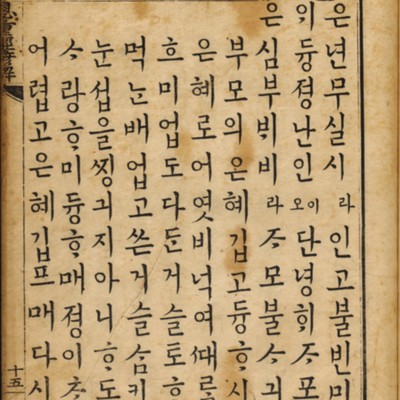 은년무실시라인고불빈미
의듕졍난인오이단녕히ᄌᆞ포
은심부ᄇᆡ비라ᄌᆞ모불ᄉᆞ긔
부모의은혜깁고듕ᄒᆞ시
은혜로어엿비넉여ᄯᅢ를
흐미업도다ᄃᆞᆫ거슬토ᄒᆞ
먹ᄂᆞᆫ배업고쓴거슬ᄉᆞᆷ키
눈섭을ᄶᅵᆼ긔지아니ᄒᆞ도
ᄉᆞ랑ᄒᆞ미듕ᄒᆞ매졍이ᄎᆞ
어렵고은혜깁프매다시
十五